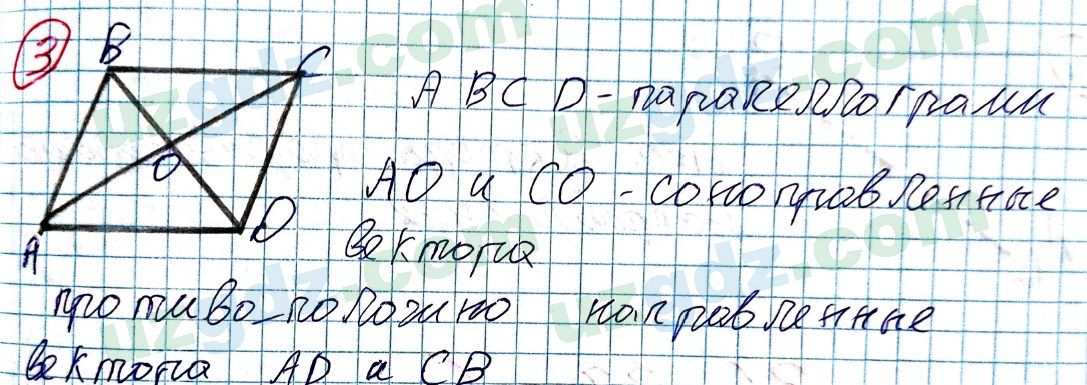 3
B C
A B C D - паралеллограмм
O
AO и CO - соноправленные
A D
вектора
противо-положно направленные
вектора AD и CB
uzgdz.com